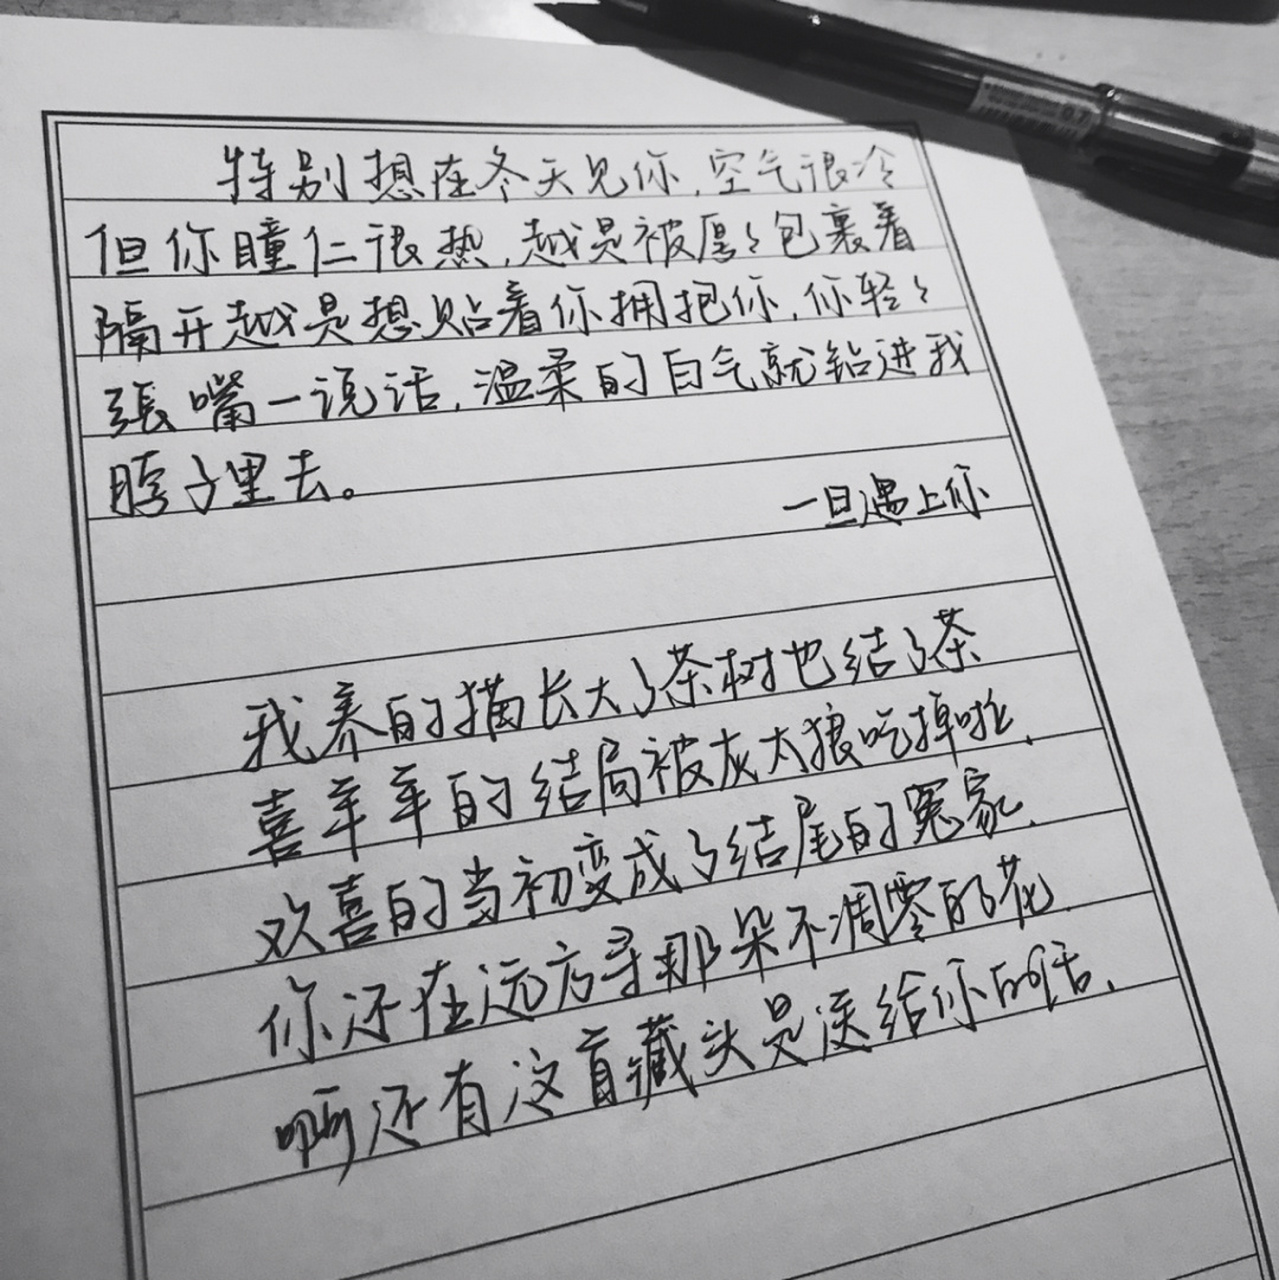 特别想在冬天见你,空气很冷
但你瞳仁很热,越是被厚々包裹着
隔开越是想贴着你拥抱你,你轻々
張嘴一说话,温柔的白气就钻进我
脖子里去。
一旦遇上你
我养的猫长大了茶树也结了茶
喜羊羊的结局被灰太狼吃掉啦、
欢喜的当初变成了结尾的冤家、
你还在远方寻那朵不凋零的花
啊还有这首藏头是送给你的话、